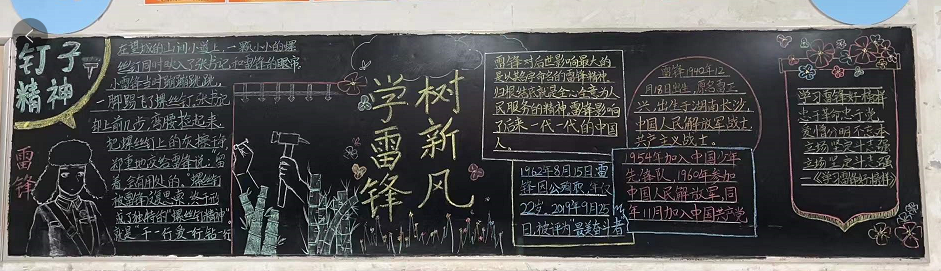 钉子
精神
在望城的山间小道上,一颗小小的螺
丝钉同时映入了张书记和雷锋的眼帘
小雷锋当时蹦蹦跳跳
脚踢了螺丝钉,张书记
却上前几步,弯腰捡起来
把螺丝钉上的灰擦掉
郑重地交给雷锋说:留
着,会有用处的。"螺丝钉
被雷锋
就是"干一行爱一行钻一行
雷锋
学雷锋
树新风
雷锋对后世影响最大的
是以其字命名的雷锋精神
归根结底就是全心全意为人
民服务的精神,雷锋影响
了后来一代一代的中国
人。
1962年8月15日雷
锋因公殉职,年仅
22岁。2019年9月25
日,被评为最美奋斗者
雷锋1940年12
月18日出生,原名雷正
兴,出生于湖南长沙,
中国人民解放军战士,
共产主义战士。
1954年加入中国少年
先锋队,1960年参加
中国人民解放军,同
年11月加入中国共产党。
学习雷锋好榜样
忠于革命忠于党
爱憎分明不忘本
立场坚定斗志强
立场坚定斗志强
《学习雷锋好榜样》